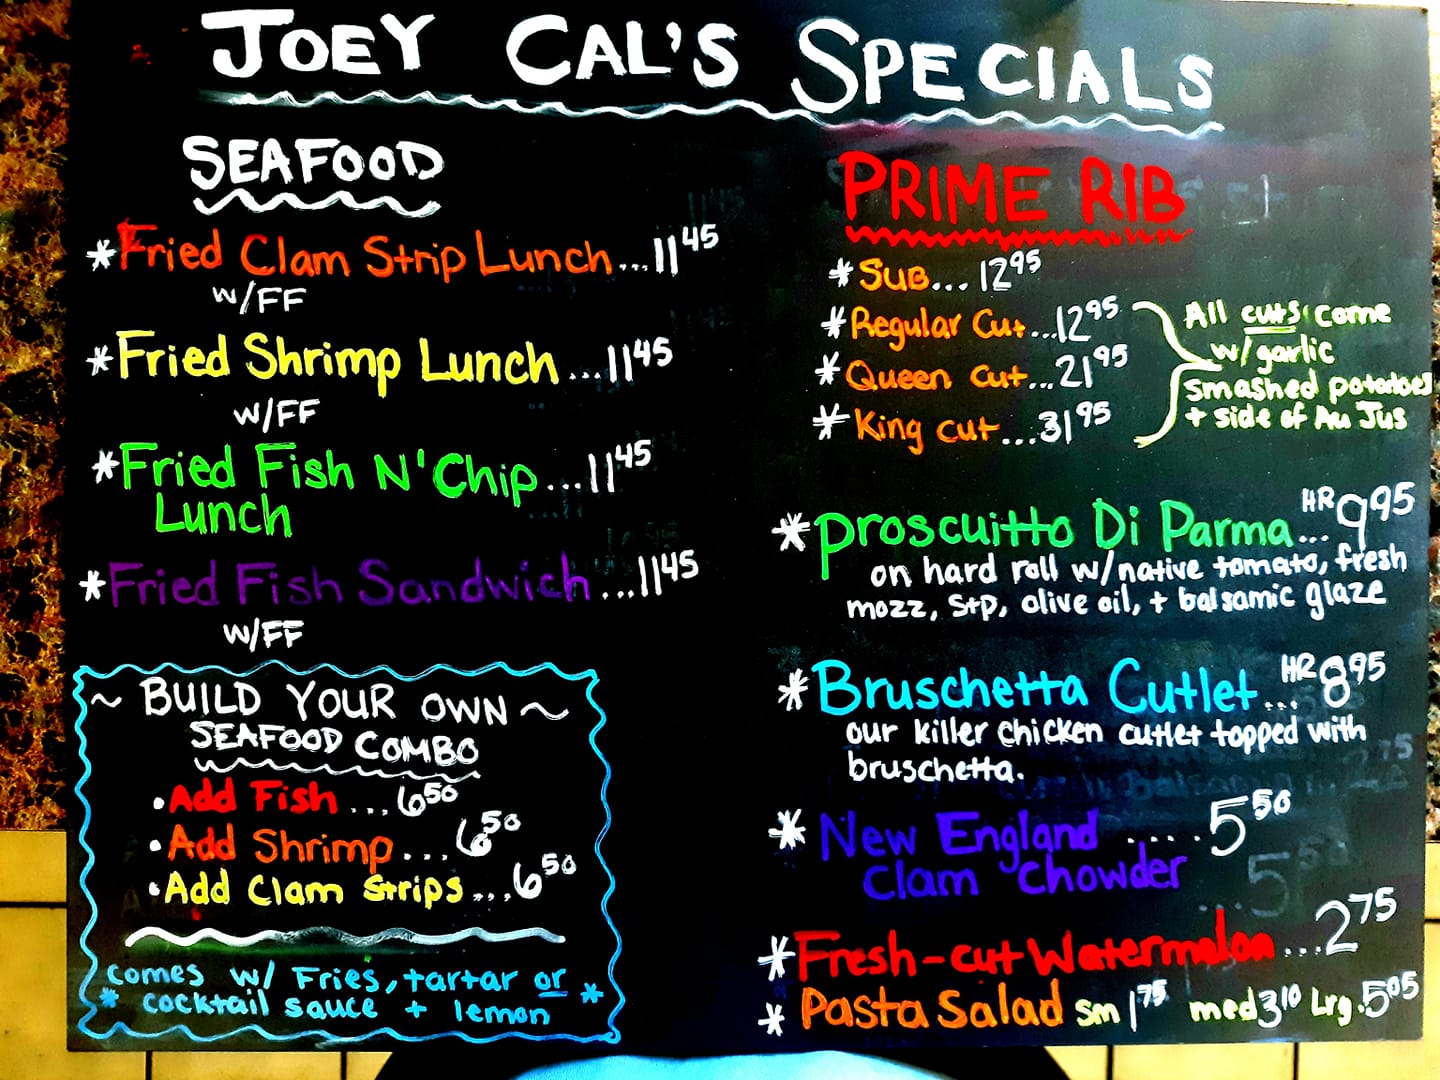 JOEY CAL'S SPECIALS
SEAFOOD
*Fried Clam Strip Lunch...11 45
w/FF
*Fried Shrimp Lunch...11 45
w/FF
*Fried Fish N' Chip...11 45
Lunch
*Fried Fish Sandwich...11 45
w/FF
~ BUILD YOUR OWN ~
SEAFOOD COMBO
• Add Fish...6 50
• Add Shrimp...6 50
• Add Clam Strips...6 50
comes w/ Fries, tartar or
* cocktail sauce + lemon *
PRIME RIB
*SUB...12 95
*Regular Cut...12 95
*Queen cut...21 95
*King cut...31 95
All cuts come
w/garlic
smashed potatoes
+ side of Au Jus
*Proscuitto Di Parma...HR 9 95
on hard roll w/native tomato, fresh
mozz, s+p, olive oil, + balsamic glaze
*Bruschetta Cutlet...HR 8 95
our killer chicken cutlet topped with
bruschetta.
*New England.....5 50
Clam Chowder
*Fresh-cut Watermelon...2 75
*Pasta Salad sm 1 75 med 3 10 Lrg. 5 05